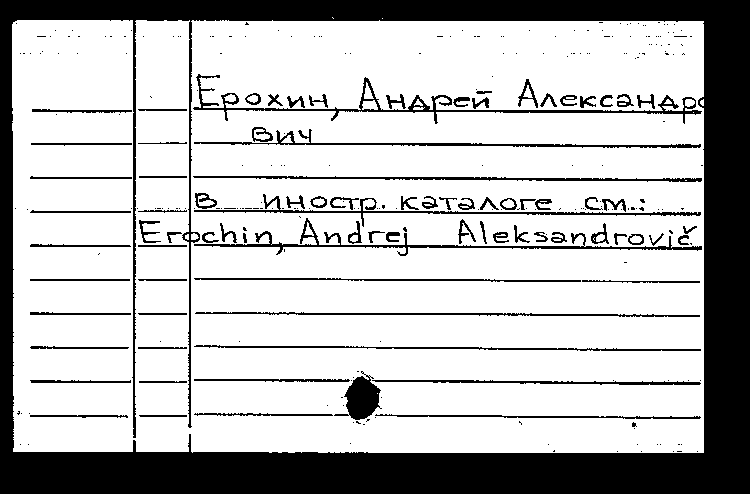 Ерохин, Андрей Александро
вич
в иностр. каталоге см.:
Erochin, Andrej Aleksandrovič